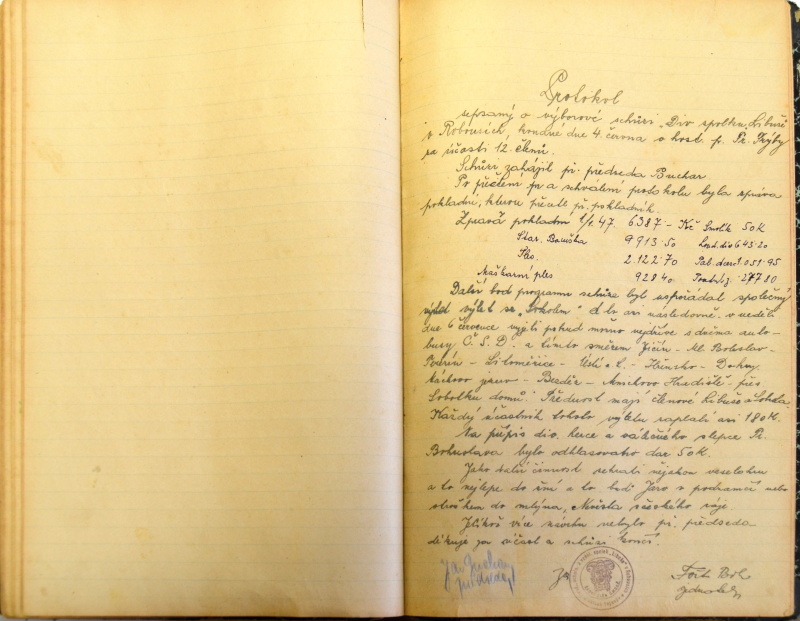 Protokol
sepsaný o výborové schůzi „Div. spolku Libuše
v Robousích, konané dne 4. června v host. p. Fr. Hryby
za účasti 12. členů.
Schůzi zahájil př. předseda Buchar.
Po přečtení a schválení protokolu byla zpráva
pokladní, kterou přečetl př. pokladník.
Zpráva pokladní 1/1. 47. 6387 - Kč Smolík 50 K
Star. Bouška 9913·50 643·20
2.122·70 1.051·95
Maškarní ples 928·40 277·80
Další bod programu schůze byl uspořádat společný
výlet se „Sokolem" a to asi následovně. v neděli
dne 6 července vyjeti pokud možno nejdříve dvěma auto-
busy Č.S.D. a tímto směrem Jičín - Ml. Boleslav -
- Litoměřice - Ústí n. L. - Hřensko - Doksy
Máchovo jezero - Bezděz - Mnichovo Hradiště - přes
Sobotku domů. Přednost mají členové Libuše a Sokola.
Každý účastník tohoto výletu zaplatí asi 180 K.
Na přípis div. herce a válečného slepce Fr.
Bohuslava bylo odhlasováno dar 50 K.
Jako další činnost sehrati nějakou veselohru
a to nejlépe do žní a to buď Jaro v podzámčí nebo
do mlýna, Nevěsta z českého ráje.
Jelikož více návrhů nebylo př. předseda
děkuje za účast a schůzi končí.
Jan Buchar
předseda
jednatel